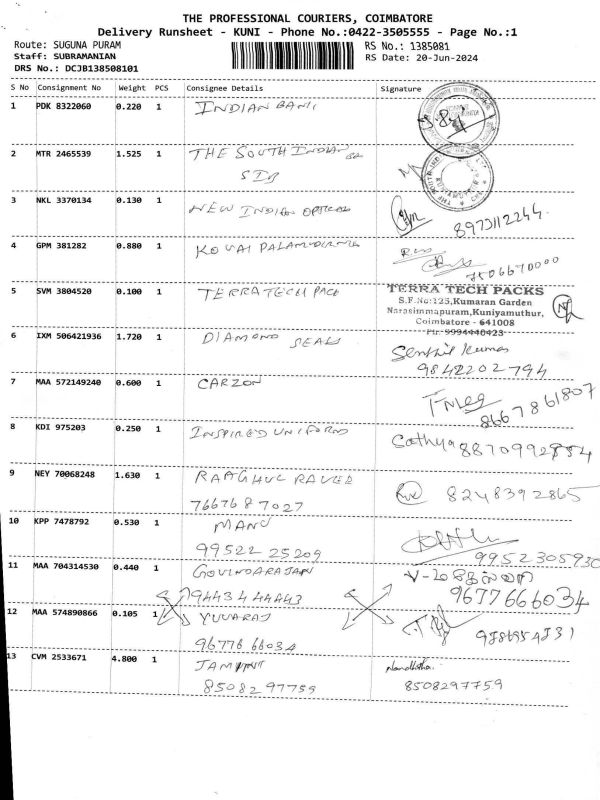 THE PROFESSIONAL COURIERS, COIMBATORE
Delivery Runsheet - KUNI - Phone No.:0422-3505555 - Page No.:1
Route: SUGUNA PURAM
RS No.: 1385081
Staff: SUBRAMANIAN
RS Date: 20-Jun-2024
DRS No.: DCJB138508101
S No Consignment No Weight PCS Consignee Details Signature
1 PDK 8322060 0.220 1 INDIAN BANK
2 MTR 2465539 1.525 1 THE SOUTH INDIAN
SIB
3 NKL 3370134 0.130 1 NEW INDIAN OPTICAL
8973112244
4 GPM 381282 0.880 1 KOVAI
7506670000
5 SVM 3804520 0.100 1 TERRATECH PACK
TERRA TECH PACKS
S.F.No:125,Kumaran Garden
Narasimmapuram,Kuniyamuthur,
Coimbatore - 641008
Ph: 9994440423
6 IXM 506421936 1.720 1 DIAMOND SEALS
Senthil Kumar
9842202794
7 MAA 572149240 0.600 1 CARZON
8667861807
8 KDI 975203 0.250 1 INSPIRED UNIFORMS
Sathya 8870992854
9 NEY 70068248 1.630 1 RAAGHUL
7667687027
8248392865
10 KPP 7478792 0.530 1 MANO
99522 25209
9952305930
11 MAA 704314530 0.440 1 GOVINDARAJAN
94434 44443
9677666034
12 MAA 574890866 0.105 1 YUVARAJ
96776 66034
13 CVM 2533671 4.800 1
8508297759
Nandhitha.
8508297759